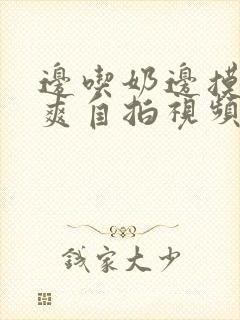 邊喫奶邊摸
爽自拍視頻
錢家大少